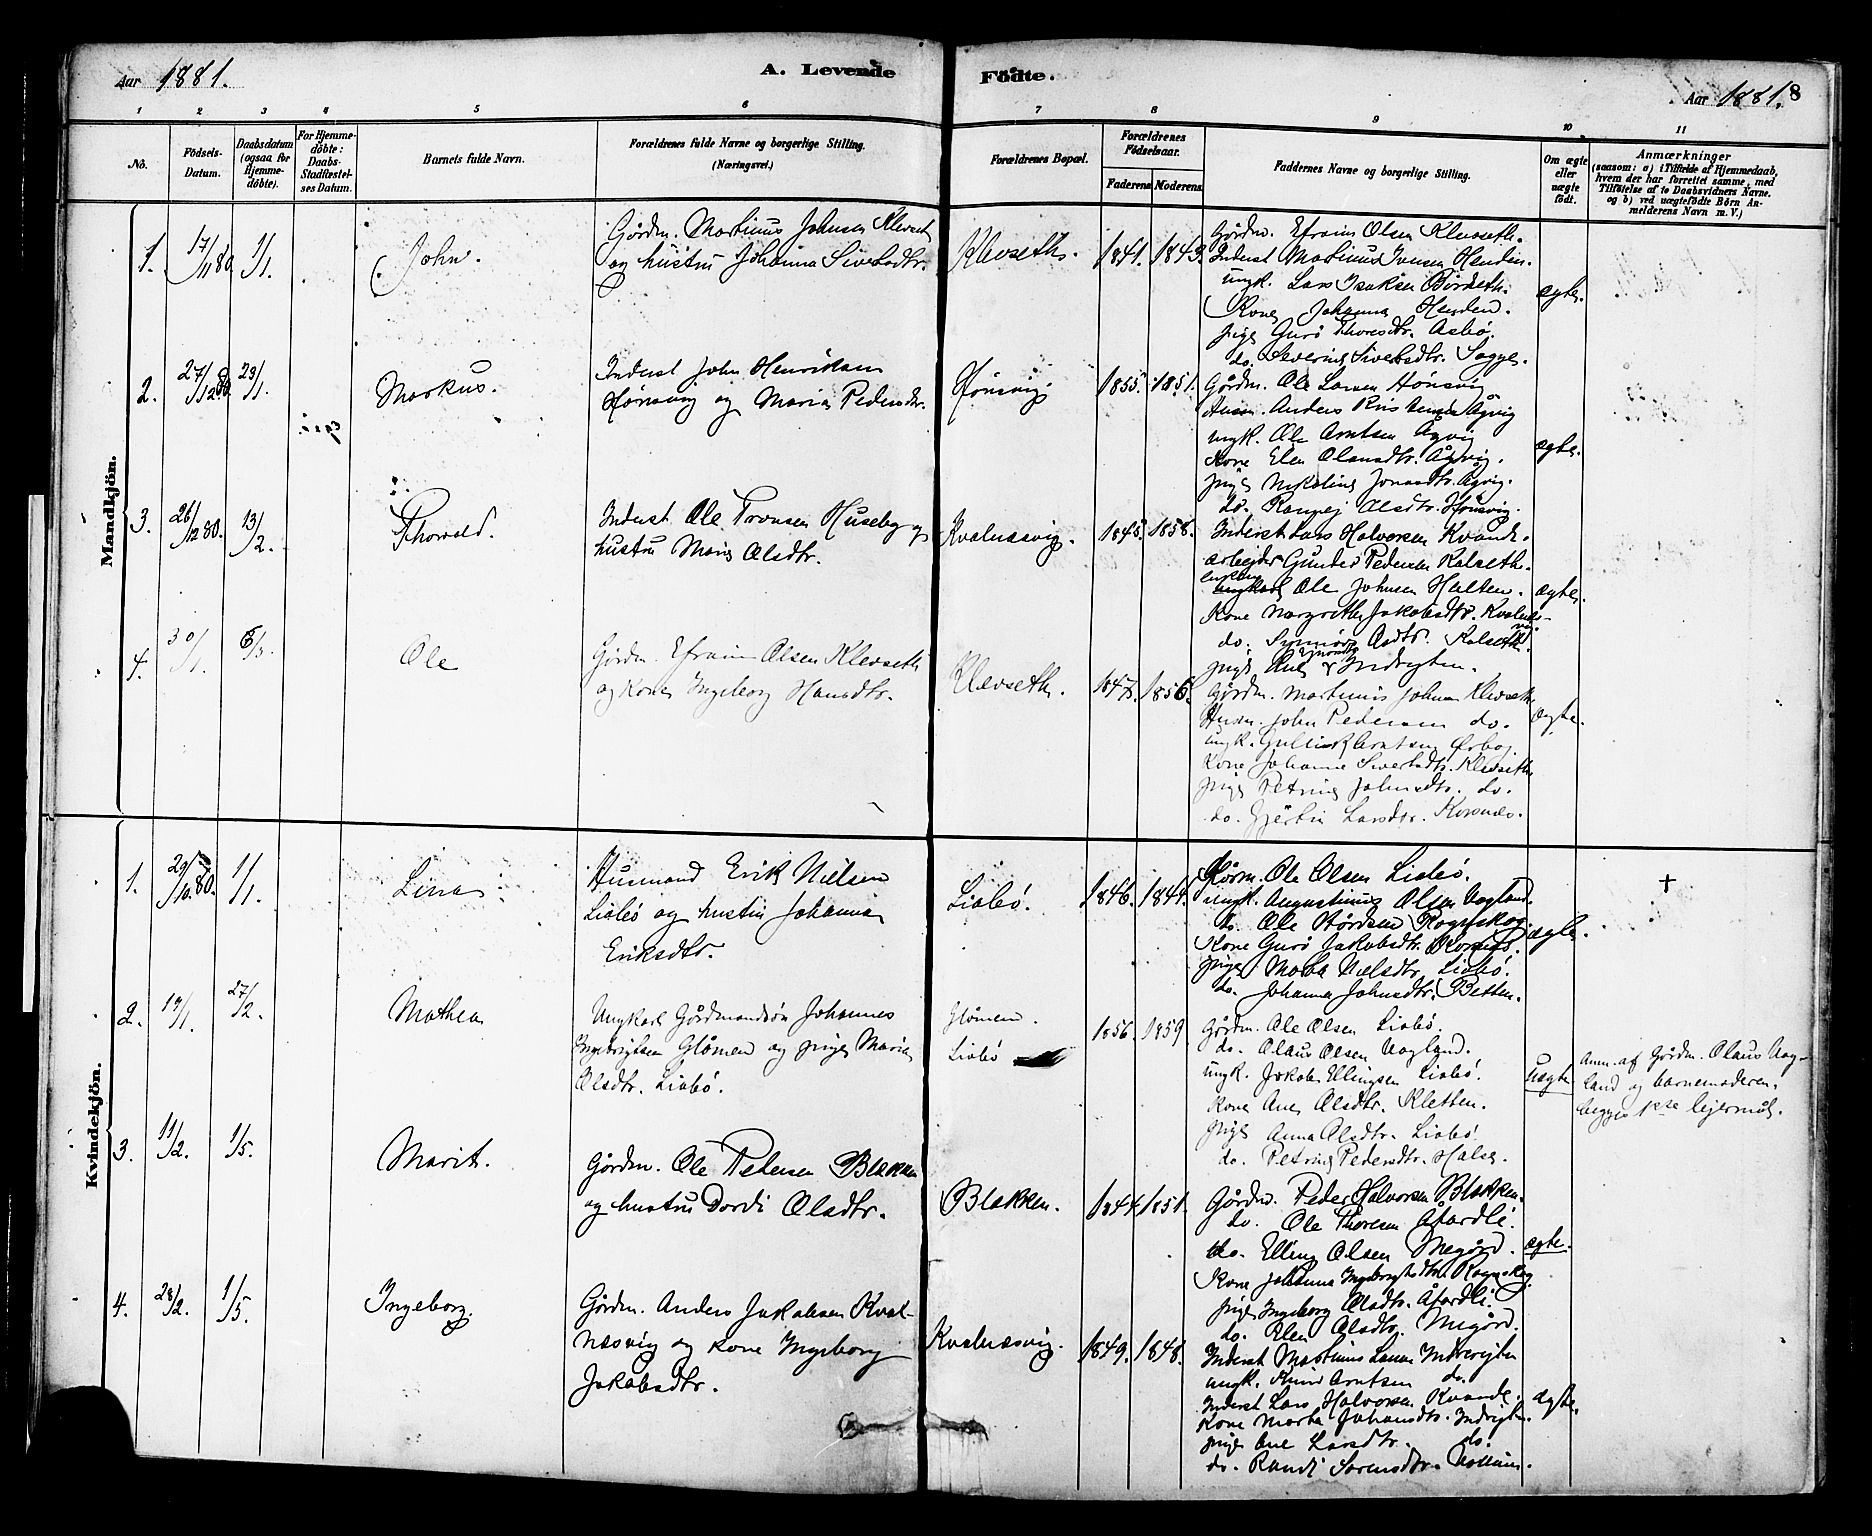 Aar 1881.
A. Levende Födte.
Aar 1881. 8
1 2 3 4 5 6 7 8 9 10 11
No.
Födsels-Datum.
Daabsdatum (ogsaa for Hjemme-döbte).
For Hjemme-döbte: Daabs-Stadfæstel-ses Datum.
Barnets fulde Navn.
Forældrenes fulde Navne og borgerlige Stilling. (Næringsvei.)
Forældrenes Bopæl.
Forældrenes Födselsaar.
Faderens. Moderens.
Faddernes Navne og borgerlige Stilling.
Om ægte eller uægte födt.
Anmærkninger
(saasom: a) i Tilfælde af Hjemmedaab, hvem der har forrettet samme, med Tilföielse af to Daabsvidners Navne, og b) ved uægtefödte Börn An-melderens Navn m. V.)
Mandkjön.
1. 17/11 80 1/1. John.
Gårdm. Martinus Johnsen Klevset
og hustru Johanna Sivertsdtr.
Klevseth. 1841. 1843.
Gårdm. Efraim Olsen Klevseth.
Inderst Martinus Iversen Henden.
ungk. Lars Isaksen Børseth.
Kone Johanna Henden.
pige Guro Thoresdtr. Asbø.
do. Severine Sivertsdtr. Sogge.
ægte.
2. 27/12 80. 23/1. Markus.
Inderst John Henriksen
Hønsvig og Maria Pedersdtr.
Hønsvig 1855. 1851.
Gårdm. Ole Larsen Hønsvig
Husm. Anders Kristensen Ågvig
ungk. Ole Arntsen Ågvig
Kone Elen Olausdtr. Ågvig.
pige Nikoline Jonasdtr. Ågvig.
do. Olsdtr. Hønsvig.
ægte.
3. 26/12 80. 13/2. Thorvald.
Inderst Ole Tronsen Huseby og
hustru Marie Olsdtr.
Kvalnæsvig. 1845. 1858.
Inderst Lars Halvorsen Kvande.
arbejder Gunder Pedersen Kalseth.
enkem. Ole Johnsen Halten.
Kone Margrethe Jakobsdtr. Kvalnæsvig.
do. Olsdtr. Kalseth.
pige Ane Indregten.
ægte.
4. 30/1. 6/3. Ole
Gårdm. Efraim Olsen Klevseth
og Kone Ingeborg Hansdtr.
Klævseth. 1847. 1856.
Gårdm. Martinus Johnsen Klevseth
Husm. John Pedersen do.
ungk. Gullik Arntsen Ørbog.
Kone Johanne Sivertsdtr. Klevseth
pige Petrine Johnsdtr. do.
do. Gjertin Larsdtr. Korsnæs.
ægte.
Kvindekjön.
1. 29/10. 80. 1/1. Lina
Husmand Erik Nielsen
Liabø og hustru Johanna
Eriksdtr.
Liabø. 1846. 1844.
Gårdm. Ole Olsen Liabø.
ungk. Augustinus Olsen Vagland.
do. Ole Størdsen Rognskog.
Kone Guro Jakobsdtr. Korsnæs.
pige Marta Nielsdtr. Liabø.
do. Johanna Johnsdtr. Betten.
ægte.
†
2. 19/1. 27/2. Mathea
Ungkarl Gårdmandsøn Johannes
Ingebrigtsen Glåmen og pige Maria
Olsdtr. Liabø.
Glåmen.
Liabø
1856. 1859
Gårdm. Ole Olsen Liabø.
do. Olaus Olsen Vagland.
ungk. Jakob Ellingsen Liabø.
Kone Ane Olsdtr. Kletten.
pige Anna Olsdtr. Liabø
do. Petrine Pedersdtr. Halse.
uægte
Anm. af Gårdm. Olaus Vag-
land og barnemoderen.
begges 1ste lejermål.
3. 11/2. 1/5. Marit.
Gårdm. Ole Pedersen Blakken
og hustru Dordi Olsdtr.
Blakken. 1844. 1851.
Gårdm. Peder Halvorsen Blakken.
do. Ole Thoresen Åfardli.
do. Elling Olsen Megård.
Kone Johanna Ingebrigtsdtr. Rognskog
pige Ingeborg Olsdtr. Åfardli.
do. Elen Olsdtr. Megård.
ægte.
4. 28/2. 1/5. Ingeborg.
Gårdm. Anders Jakobsen Kval-
næsvig og Kone Ingeborg
Jakobsdtr.
Kvalnæsvig. 1849. 1848.
Inderst Martinus Larsen Indregten
ungk. Arntsen do.
Inderst Lars Halvorsen Kvande.
Kone Marta Johansdtr. Indregten.
pige Ane Larsdtr. do.
do. Randi Sørensdtr.
ægte.